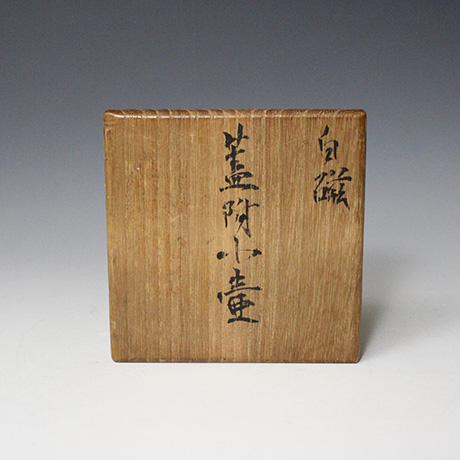 白磁
蓋附小壷